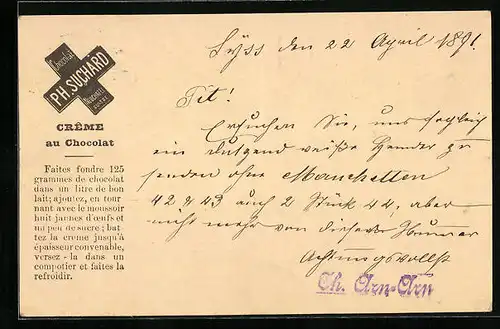 Chocolat
PH. SUCHARD
NEUCHATEL
SUISSE
CRÈME
au Chocolat
Faites fondre 125
grammes de chocolat
dans un litre de bon
lait; ajoutez, en tour
nant avec le moussoir
huit jaunes d'œufs et
un peu de sucre; bat
tez la creme jusqu'à
épaisseur convenable,
versez-la dans un
compotier et faites la
refroidir.
Lyss den 22 April 1891.
Tit!
Ersuchen Sie, uns sogleich
ein Dutzend weiße Hemder zu
senden ohne Manchetten
42 & 43 auch 2 Stück 44, aber
nicht mehr von dieser Nummer
Achtungsvollst
Th. Arn-Arn